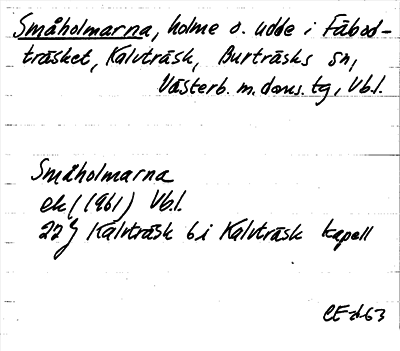 Småholmarna, holme o. udde i Fäbod-
träsket, Kalvträsk, Burträsks sn,
Västerb. m. doms. tg, Vbl.
Småholmarna
ek (1961) Vbl.
22J Kalvträsk 6i Kalvträsk kapell